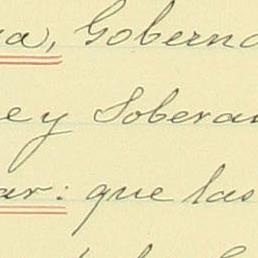 a, Goberna
e y Soberan
ar: que las